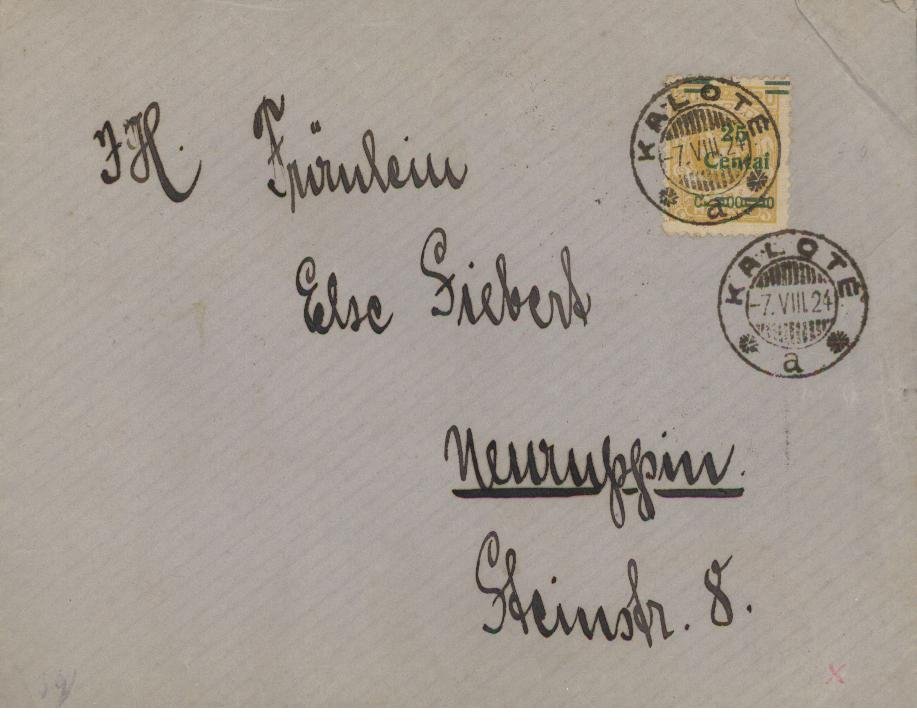 KALOTE
-7.VIII.24
a
25
Centai
KALOTE
-7.VIII.24
a
IH. Fräulein
Else Siebert
Neuruppin.
Steinstr. 8.